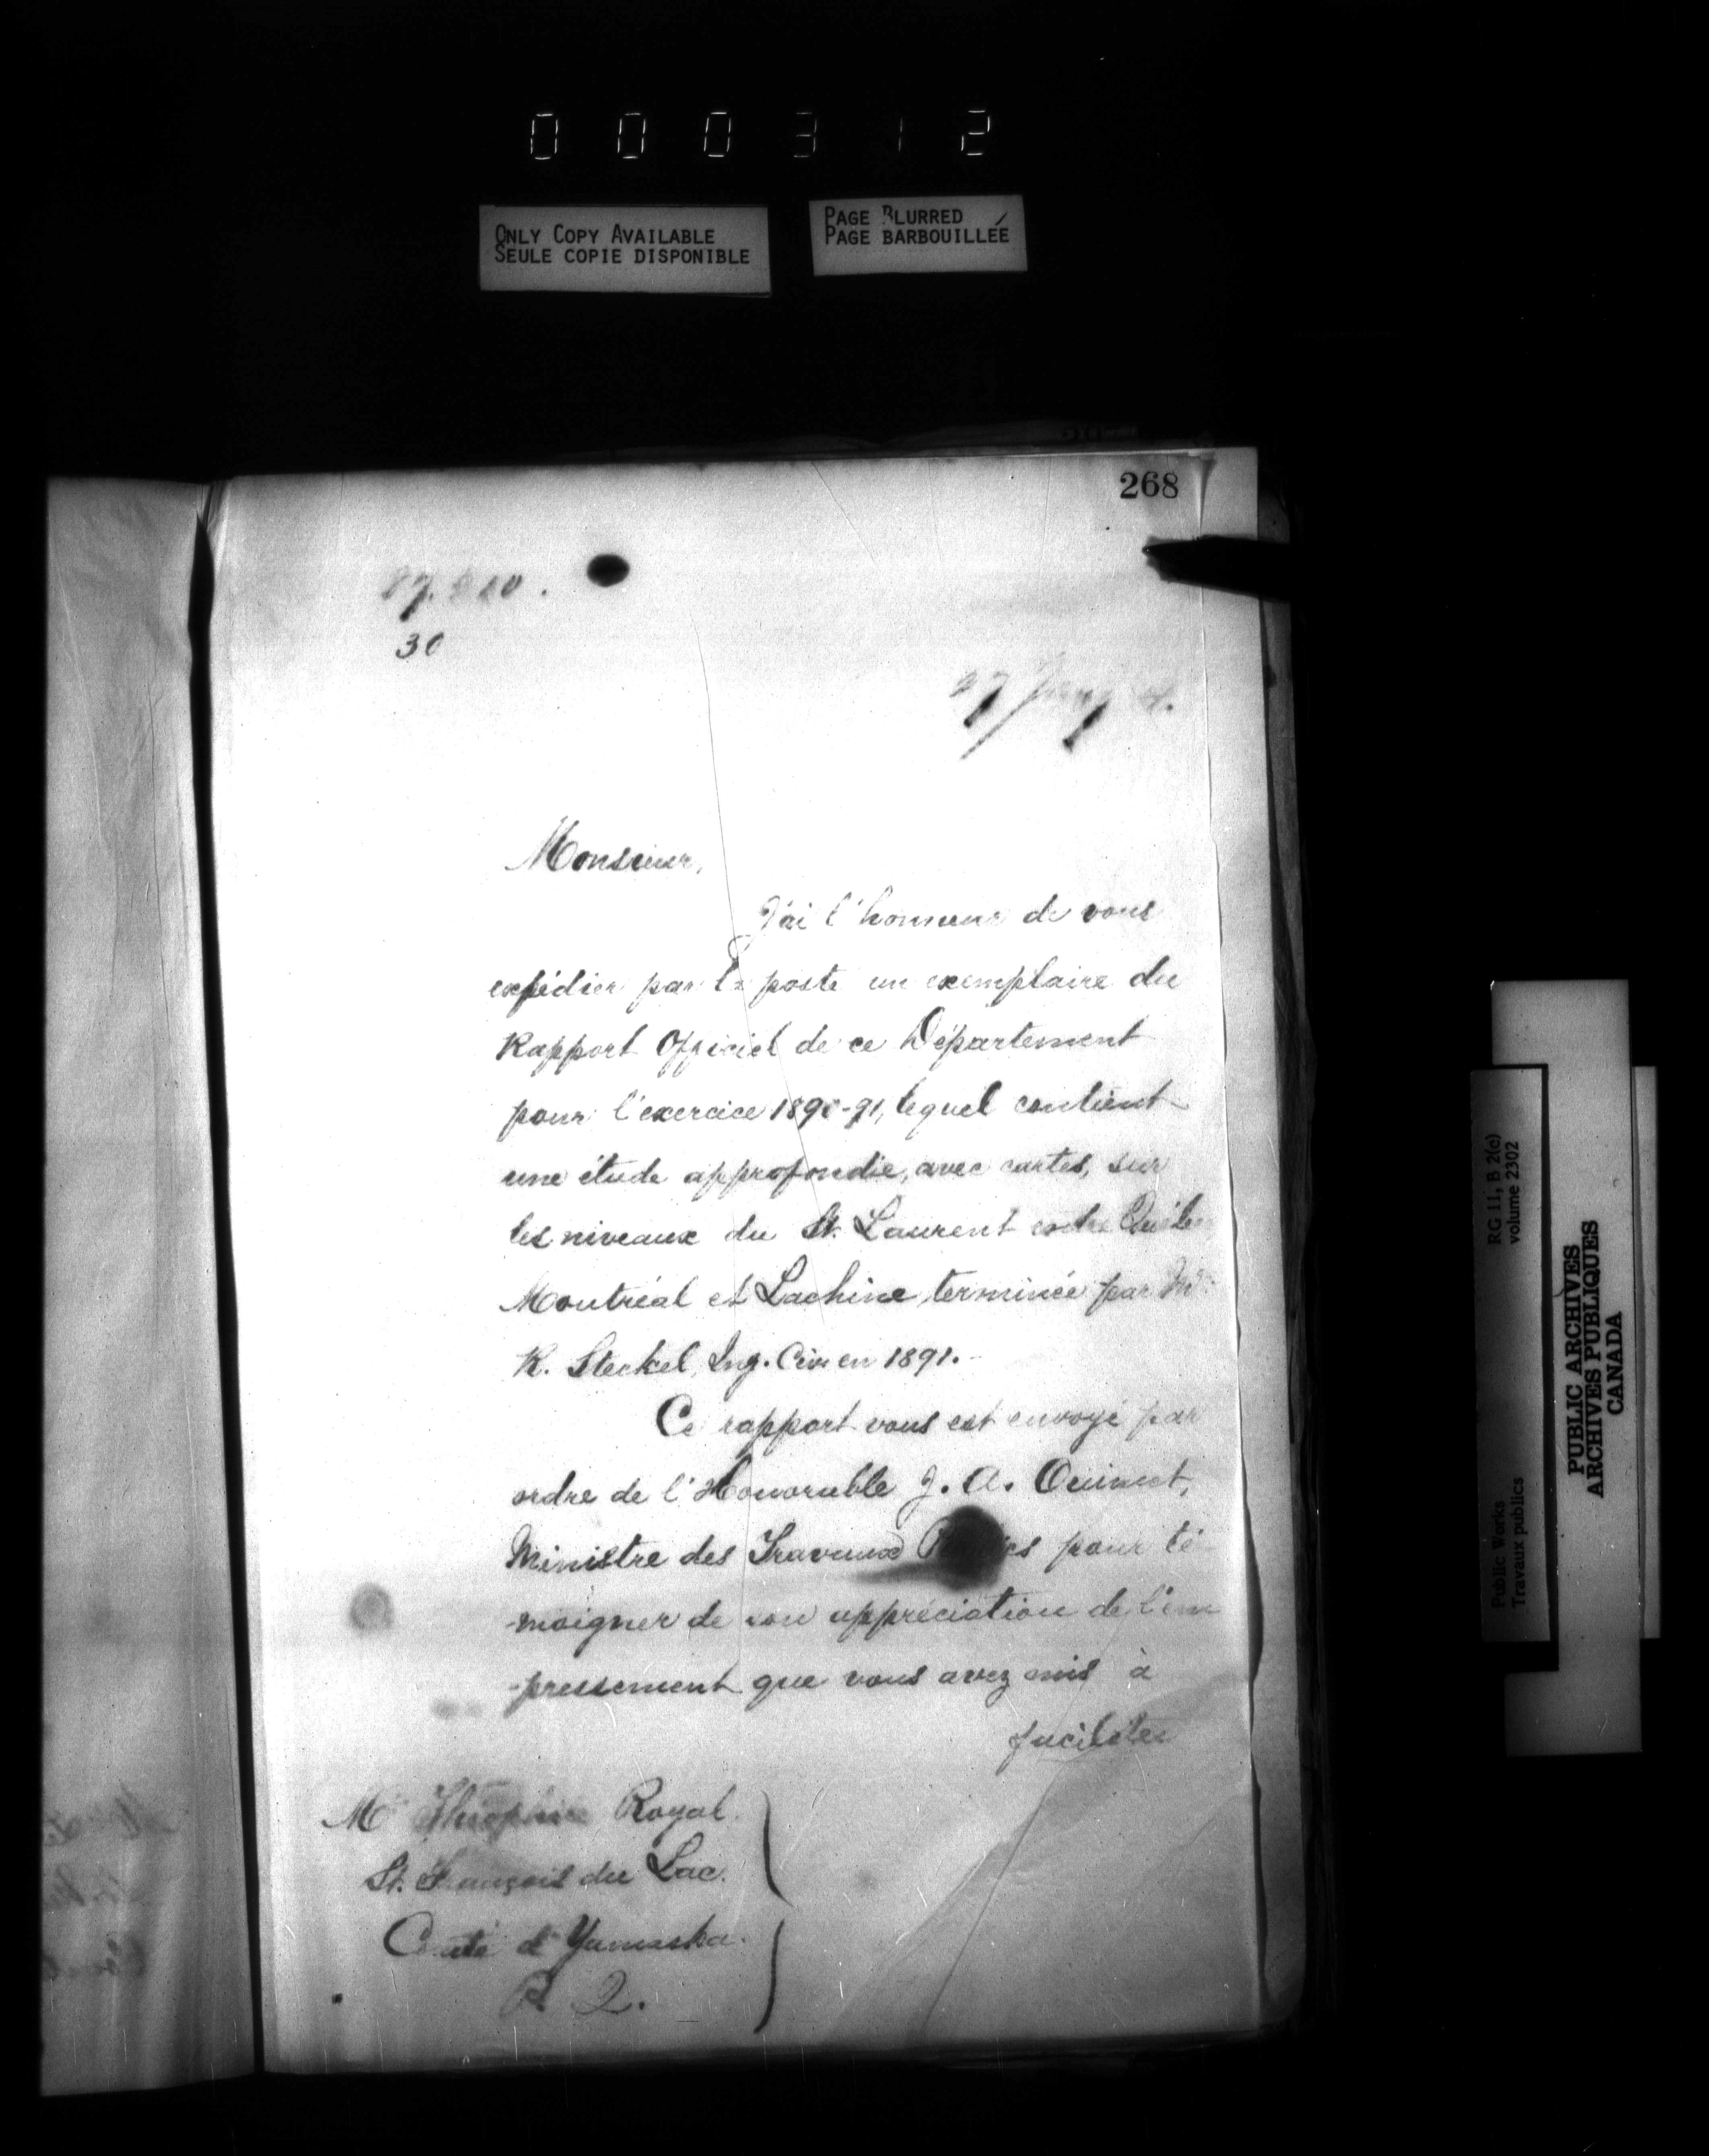 000312
ONLY COPY AVAILABLE
SEULE COPIE DISPONIBLE
PAGE BLURRED
PAGE BARBOUILLÉE
268
30
Monsieur,
J'ai l'honneur de vous
expédier par la poste un exemplaire du
Rapport Officiel de ce Département
pour l'exercice 1890-91, lequel contient
une étude approfondie, avec cartes, sur
les niveaux du St. Laurent entre
Montréal et Lachine, terminée par Mr
R. Steckel, Ing. Civ. en 1891.-
Ce rapport vous est envoyé par
ordre de l'Honorable J. A. Ouimet,
Ministre des Travaux pour té-
-moigner de son appréciation de l'em
-pressement que vous avez mis à
faciliter
M Royal.
St. François du Lac.
Comté d'Yamaska.
P. Q.
RG 11, B 2(c)
volume 2302
Public Works
Travaux publics
PUBLIC ARCHIVES
ARCHIVES PUBLIQUES
CANADA